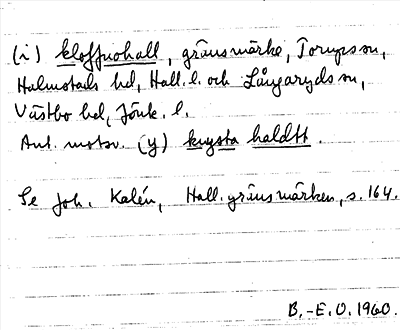 (i) kloffuohall, gränsmärke, Torups sn,
Halmstads hd, Hall. l. och Långaryds sn,
Västbo hd, Jönk. l.
Ant. motsv. (y) knysta haldtt.
Se Joh. Kalén, Hall. gränsmärken, s. 164.
B.-E.O. 1960.